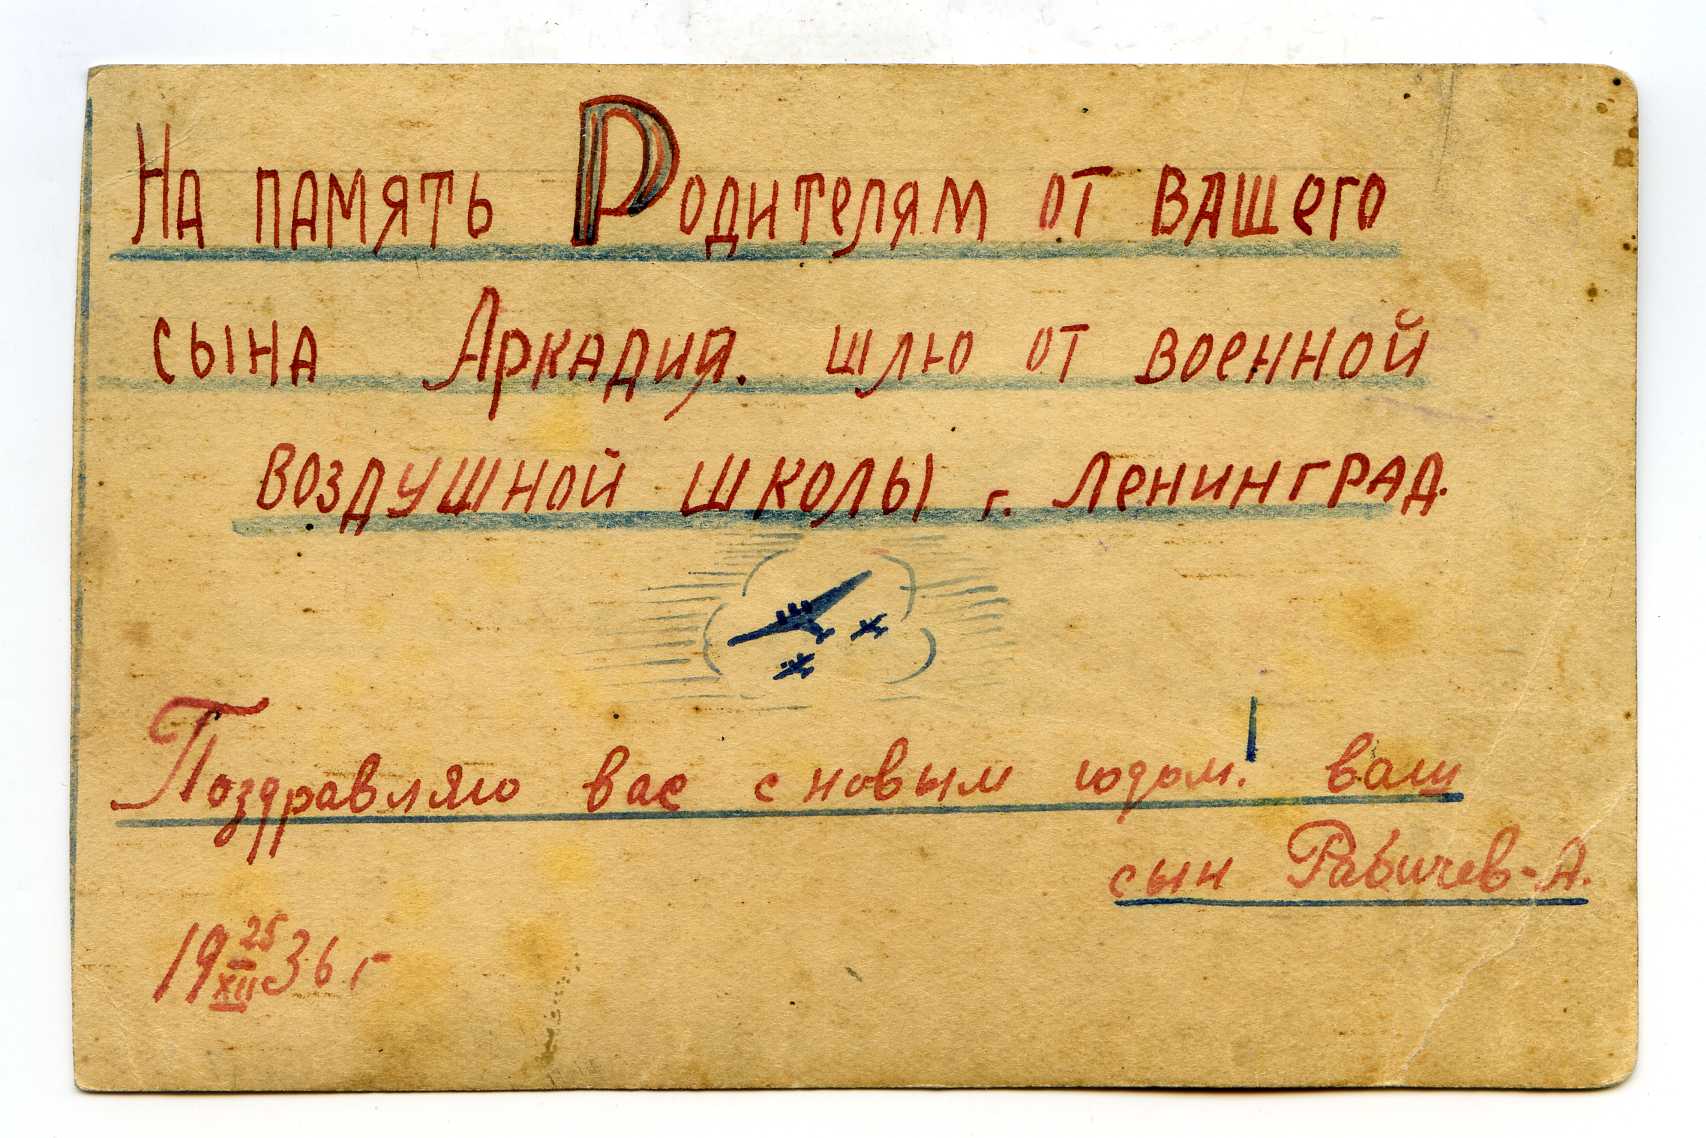 На память Родителям от вашего
сына Аркадия. шлю от военной
воздушной школы г. Ленинград.
Поздравляю вас с новым годом! ваш
сын Рабичев-А.
19 25/XII 36 г